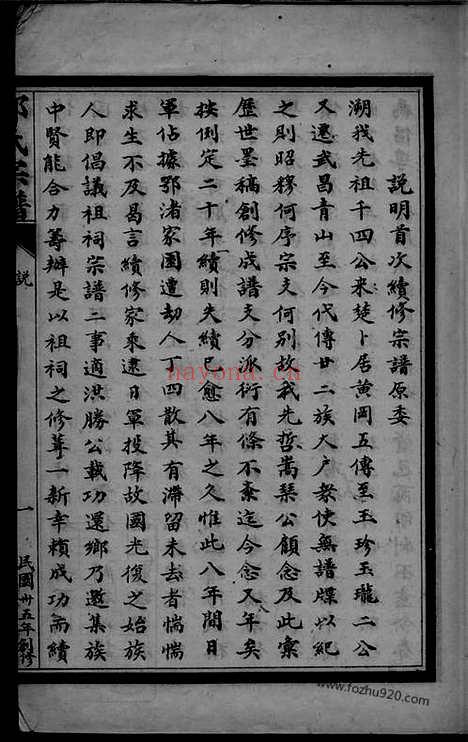 說明首次續修宗譜原委
溯我先祖千四公來楚卜居黃岡五傳至玉珍玉瓏二公
又遷武昌青山至今代傳廿二族大戶繁使無譜牒以紀
之則昭穆何序宗支何別故我先哲嵩琹公顧念及此彙
歷世墨稿創修成譜支分派衍有條不紊迄今念又年矣
按例定二十年續則失續已愈八年之久惟此八年間日
軍佔據鄂渚家國遭劫人丁四散其有滯留未去者惴惴
求生不及曷言續修家乘逮日軍投降故國光復之始族
人即倡議祖祠宗譜二事適洪勝公載功還鄉乃邀集族
中賢能合力籌辦是以祖祠之修葺一新幸賴成功而續
氏宗譜
說
一
民國卅五年創修
hayona.cn
www.fozhu920.com